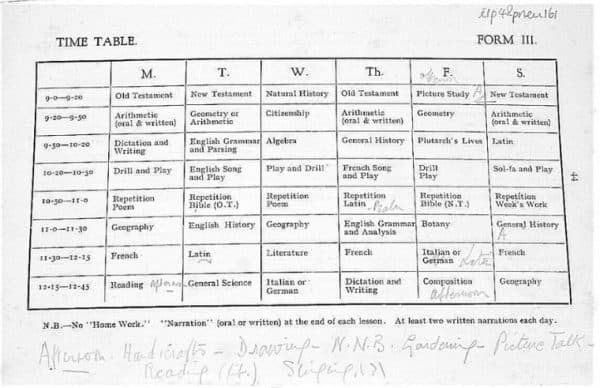 elp42pneu161
TIME TABLE. FORM III.
M. T. W. Th. F. S.
9-0—9-20 Old Testament New Testament Natural History Old Testament Picture Study New Testament
9-20—9-50 Arithmetic (oral & written) Geometry or Arithmetic Citizenship Arithmetic (oral & written) Geometry Arithmetic (oral & written)
9-50—10-20 Dictation and Writing English Grammar and Parsing Algebra General History Plutarch's Lives Latin
10-20—10-50 Drill and Play English Song and Play Play and Drill French Song and Play Drill Play Sol-fa and Play
10-50—11-0 Repetition Poem Repetition Bible (O.T.) Repetition Poem Repetition Latin Repetition Bible (N.T.) Repetition Week's Work
11-0—11-30 Geography English History Geography English Grammar and Analysis Botany General History
11-30—12-15 French Latin Literature French Italian or German Latin French
12-15—12-45 Reading General Science Italian or German Dictation and Writing Composition afternoon Geography
44
N.B.—No "Home Work." "Narration" (oral or written) at the end of each lesson. At least two written narrations each day.
Afternoon - Handicrafts - Drawing - N.N.B. Gardening - Picture Talk -
Reading (Lit.) Singing